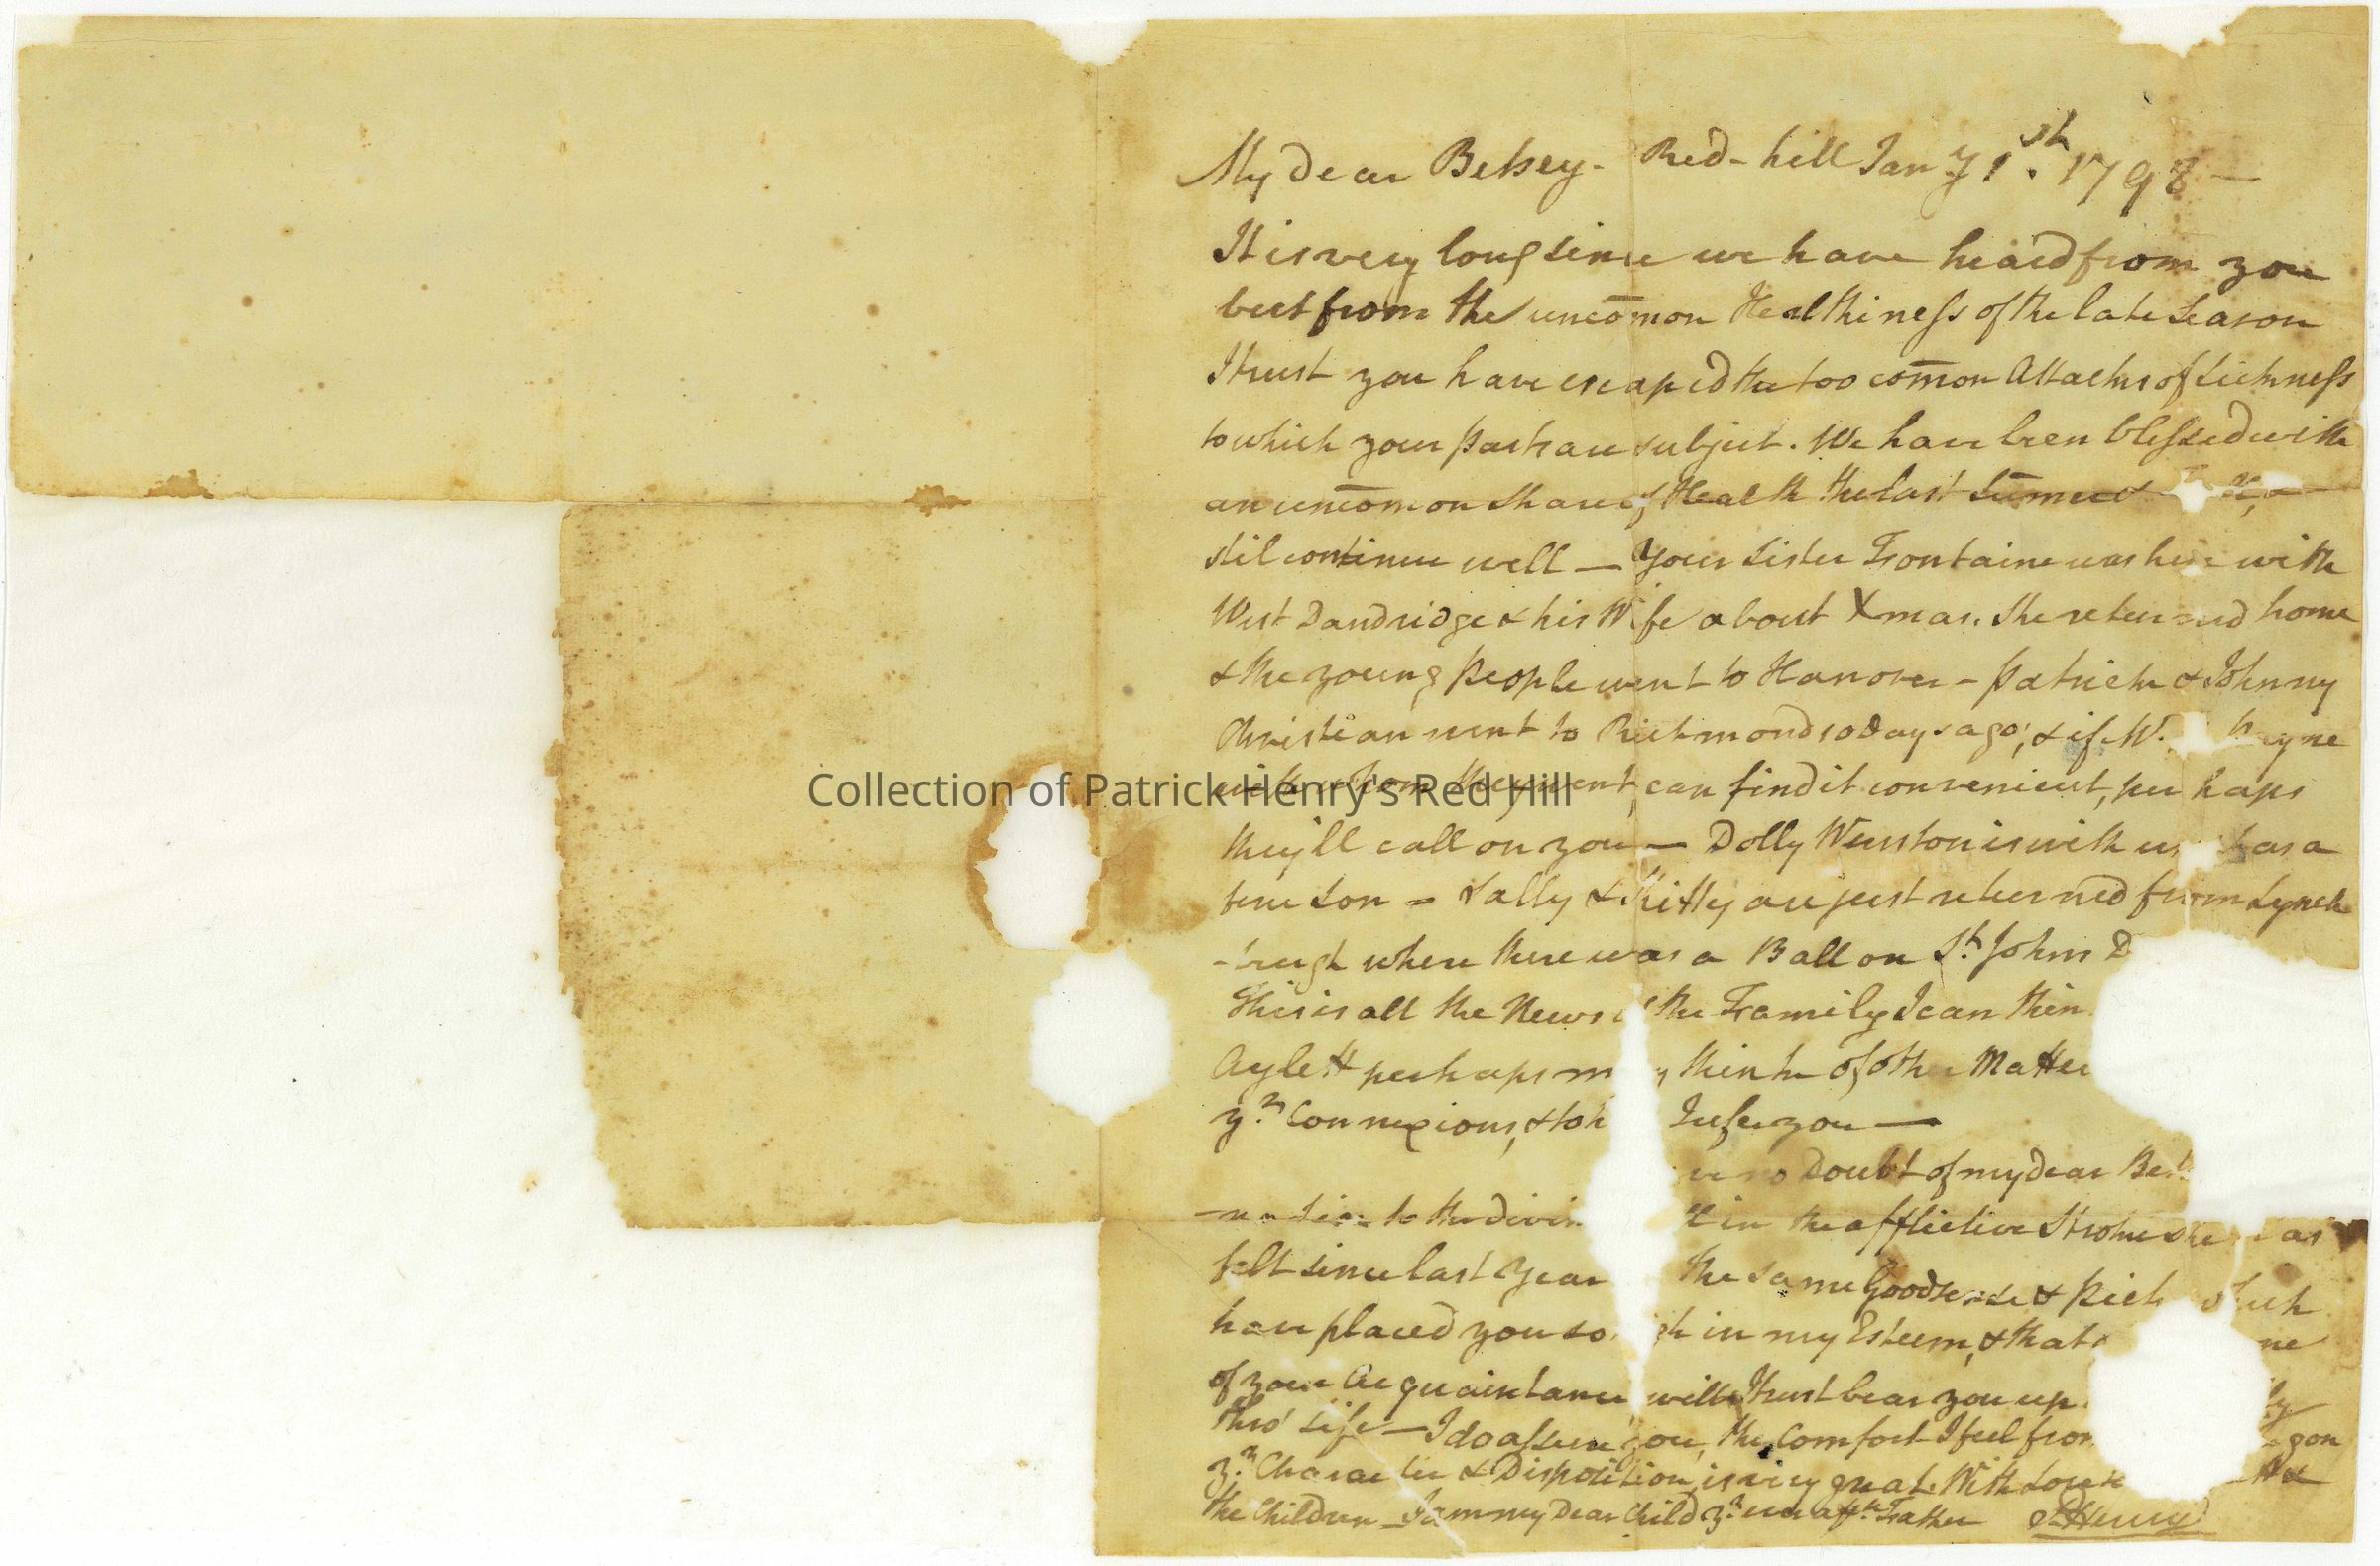 My Dear Betsey. Red-hill Jany 1st. 1798 —
It is very long since we have heard from you
but from the uncōmon Healthiness of the late Season
I trust you have escaped the too cōmon Attacks of Sickness
to which your parts are subject. We have been blessed with
an uncōmon Share of Health the last Sūmer &
stil continue well — Your Sister Fontaine was here with
West Dandridge & his Wife about Xmas. She returned home
& the young people went to Hanover - Patrick & Johnny
Christian went to Richmond 10 Days ago; & if M.
with whom they went, can find it convenient, perhaps
they'll call on you — Dolly Winston is with us has a
fine Son — Sally & Kitty are just returned from Lynch
-burgh where there was a Ball on St. Johns D
This is all the News of the Family I can thin
Aylett perhaps may think of other Matter
yr. Connexions, & to h Refer you —
no Doubt of my dear Bets
to the divin in the afflictive Stroke she has
felt since last year the same Good Sense & piet which
have placed you so gh in my Esteem, & that ne
of your Acquaintance will I trust bear you up ly
thro' Life — I do assure you, the Comfort I feel from
yr. Character & Disposition, is very great. With Love to
the Children — I am my Dear Child yr. ever affte. Father P. Henry
Collection of Patrick Henry's Red Hill